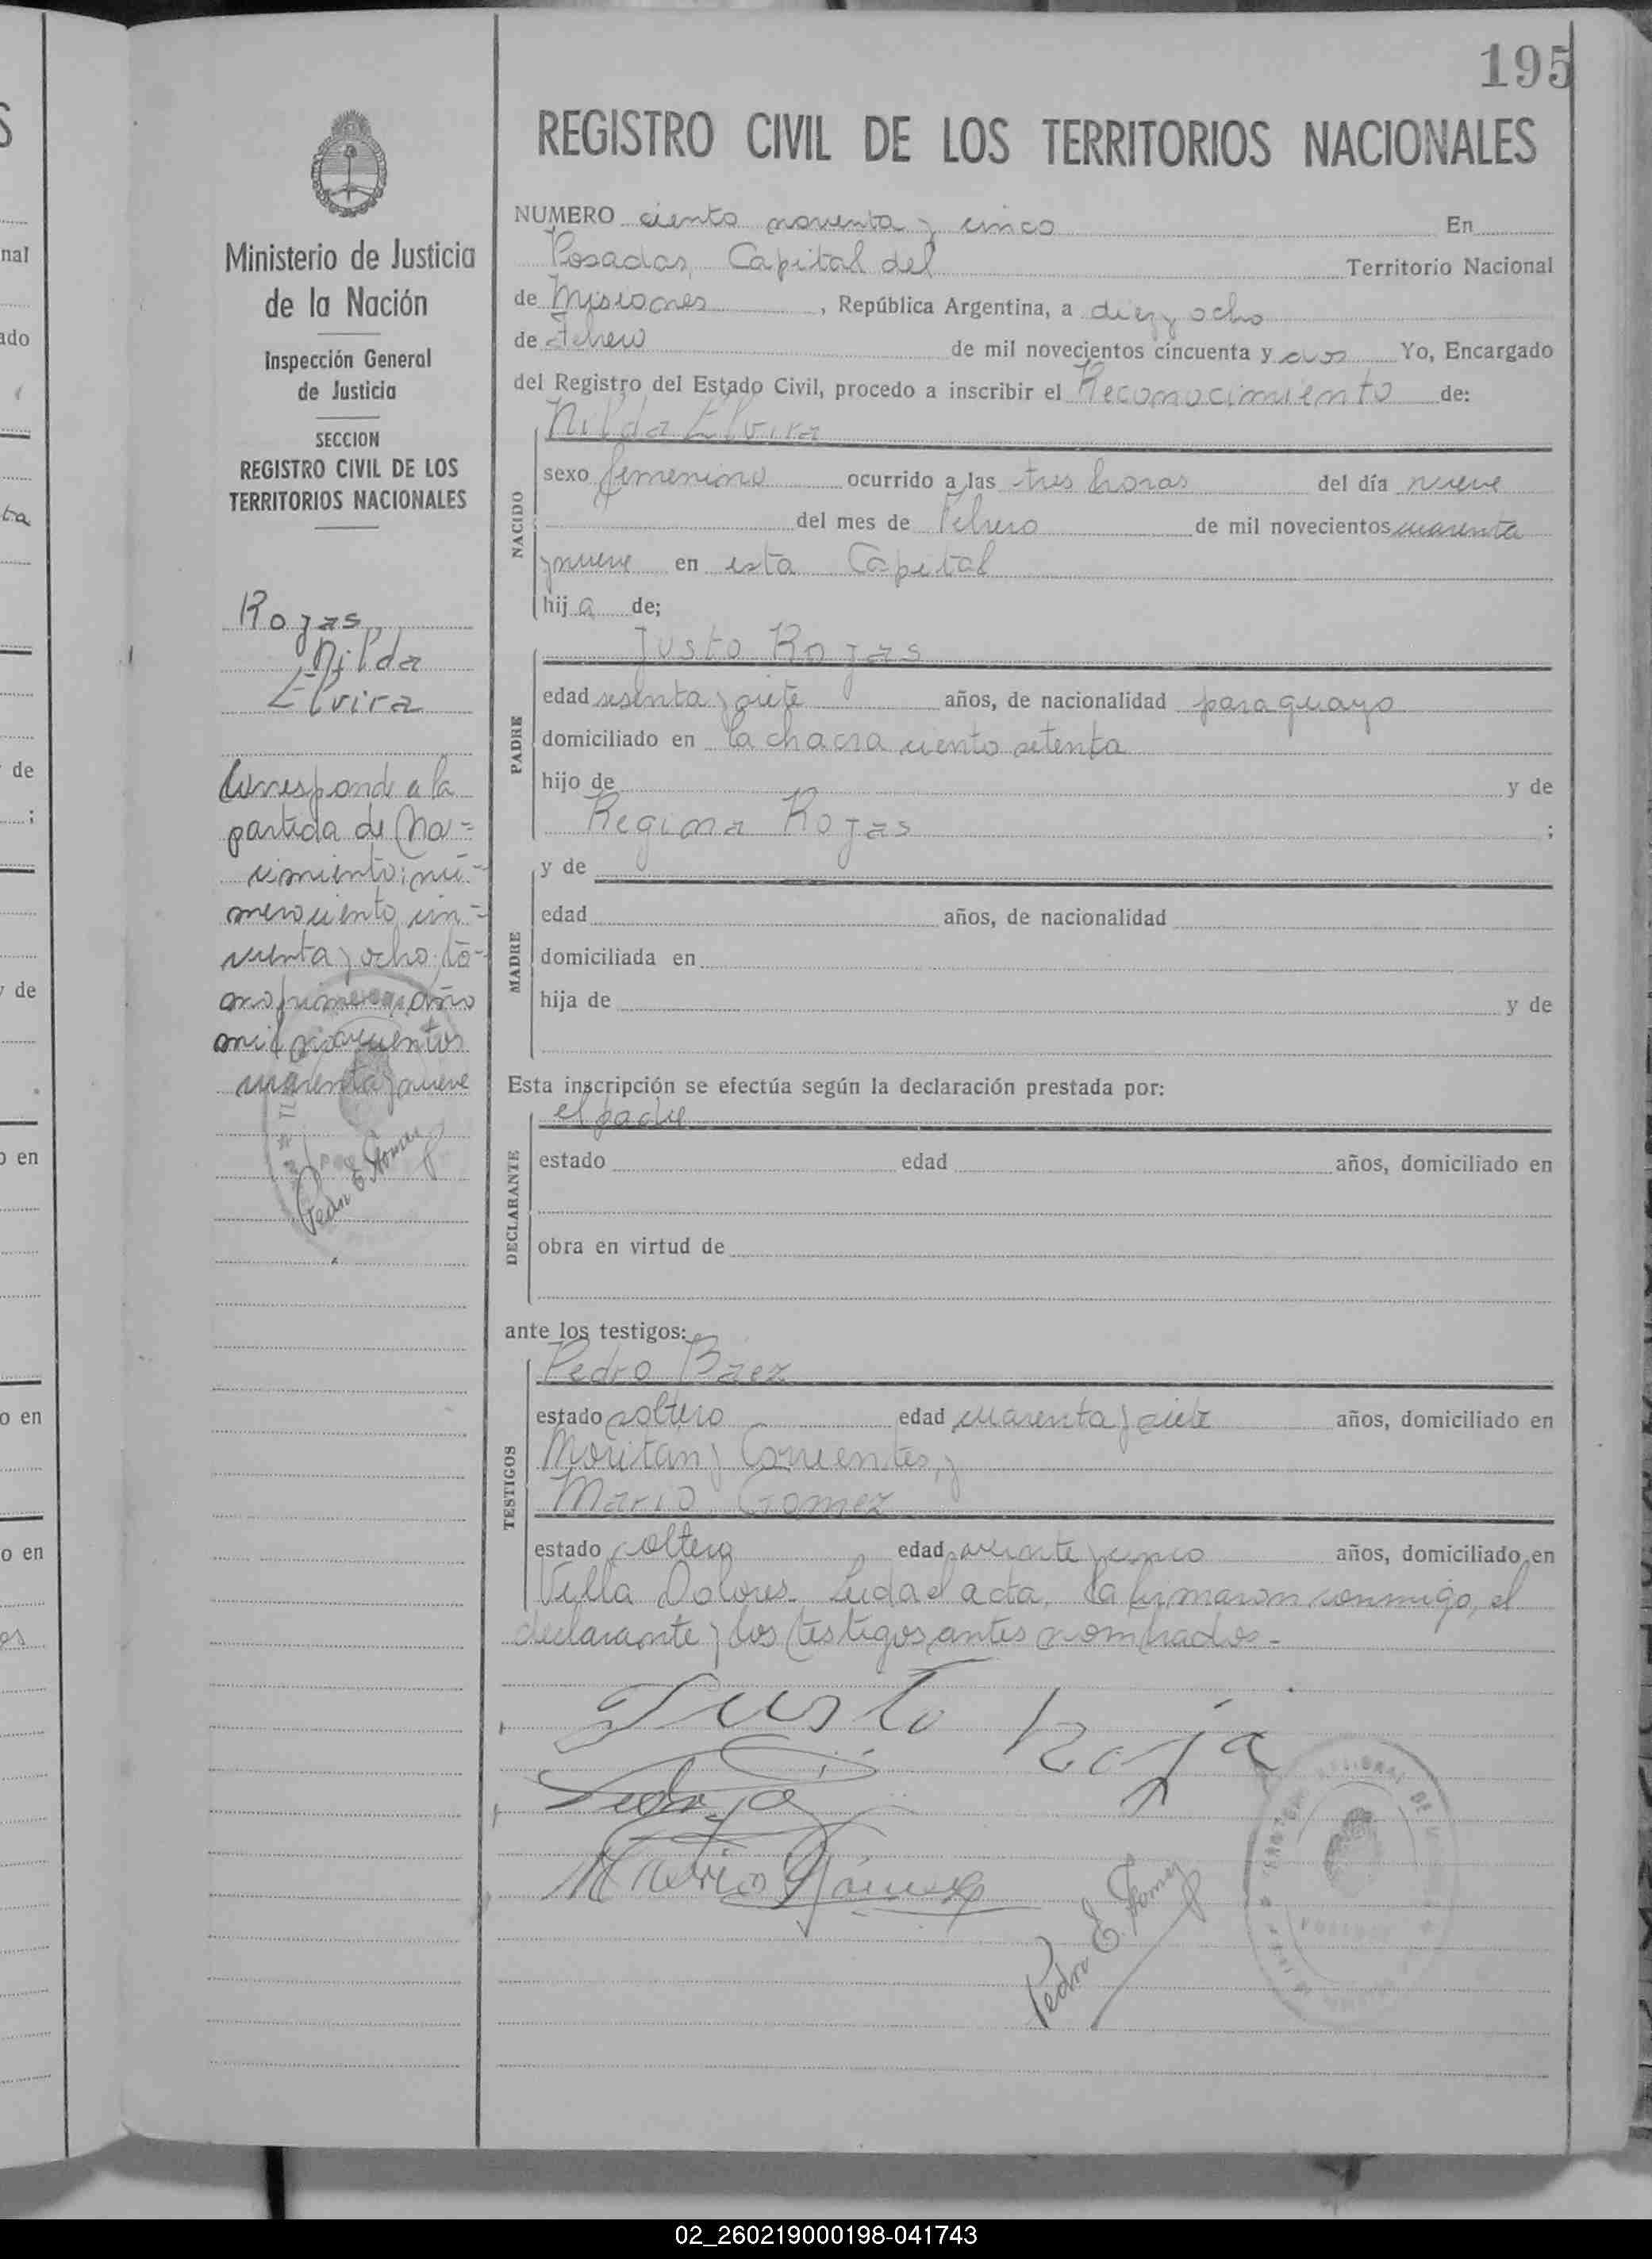 195
REGISTRO CIVIL DE LOS TERRITORIOS NACIONALES
Ministerio de Justicia
de la Nación
Inspección General
de Justicia
SECCION
REGISTRO CIVIL DE LOS
TERRITORIOS NACIONALES
Rojas
Nilda
Elvira
Corresponde a la
partida de Na=
cimiento: nú-
mero ciento cin=
cuenta y ocho, to-
mo primero, año
mil novecientos
cuarenta y nueve
Pedro E. Gomez
NUMERO ciento noventa y cinco En
Posadas, Capital del Territorio Nacional
de Misiones, República Argentina, a diez y ocho
de Febrero de mil novecientos cincuenta y dos Yo, Encargado
del Registro del Estado Civil, procedo a inscribir el Reconocimiento de:
Nilda Elvira
NACIDO
sexo femenino ocurrido a las tres horas del día nueve
del mes de Febrero de mil novecientos cuarenta
y nueve en esta Capital
hija de;
Justo Rojas
PADRE
edad sesenta y siete años, de nacionalidad paraguayo
domiciliado en la chacra ciento setenta
hijo de y de
Regina Rojas ;
y de
MADRE
edad años, de nacionalidad
domiciliada en
hija de y de
Esta inscripción se efectúa según la declaración prestada por:
el padre
DECLARANTE
estado edad años, domiciliado en
obra en virtud de
ante los testigos:
Pedro Baez
TESTIGOS
estado soltero edad cuarenta y siete años, domiciliado en
Moritan y Corrientes, y
Mario Gomez
estado soltero edad veinte y cinco años, domiciliado en
Villa Dolores. Leida el acta, la firmaron conmigo, el
declarante y los testigos antes nombrados.-
Justo Roja
Pedro
Mario Gómez
Pedro E. Gomez
02_260219000198-041743